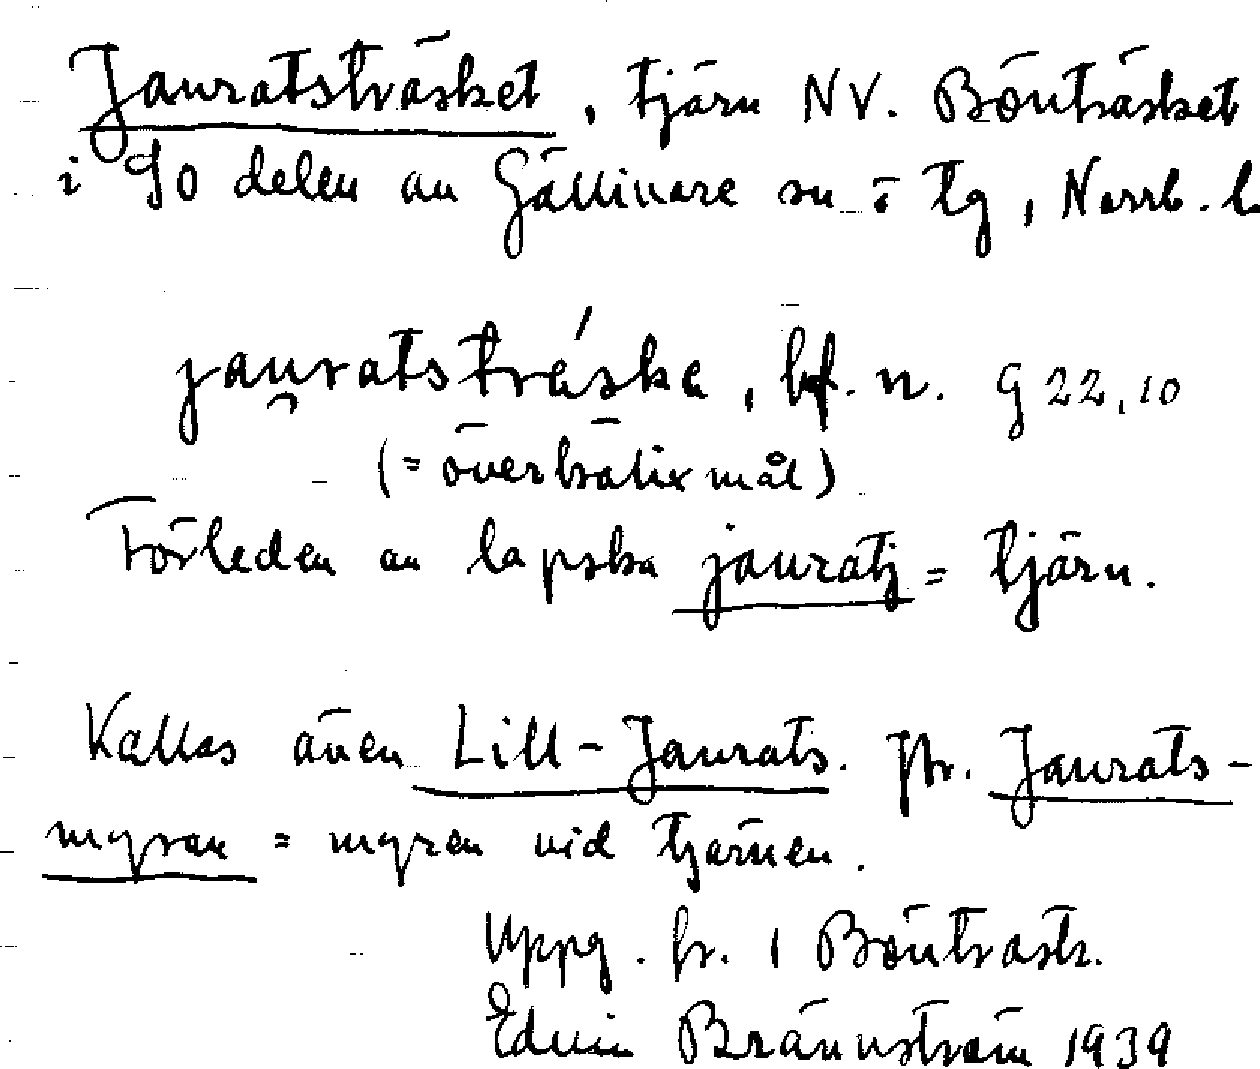 Jauratsträsket, tjärn NV. Bönträsket
i SO delen av Gällivare sn o tg, Norrb. l.
jau̯ratstrǻska, bf. n. G 22,10
(= överkalixmål)
Förleden av lapska jauratj = tjärn.
Kallas även Lill-Jaurats. Jfr. Jaurats-
myran = myren vid tjärnen.
Uppg. fr. i Bönträsk.
Edvin Brännström 1939